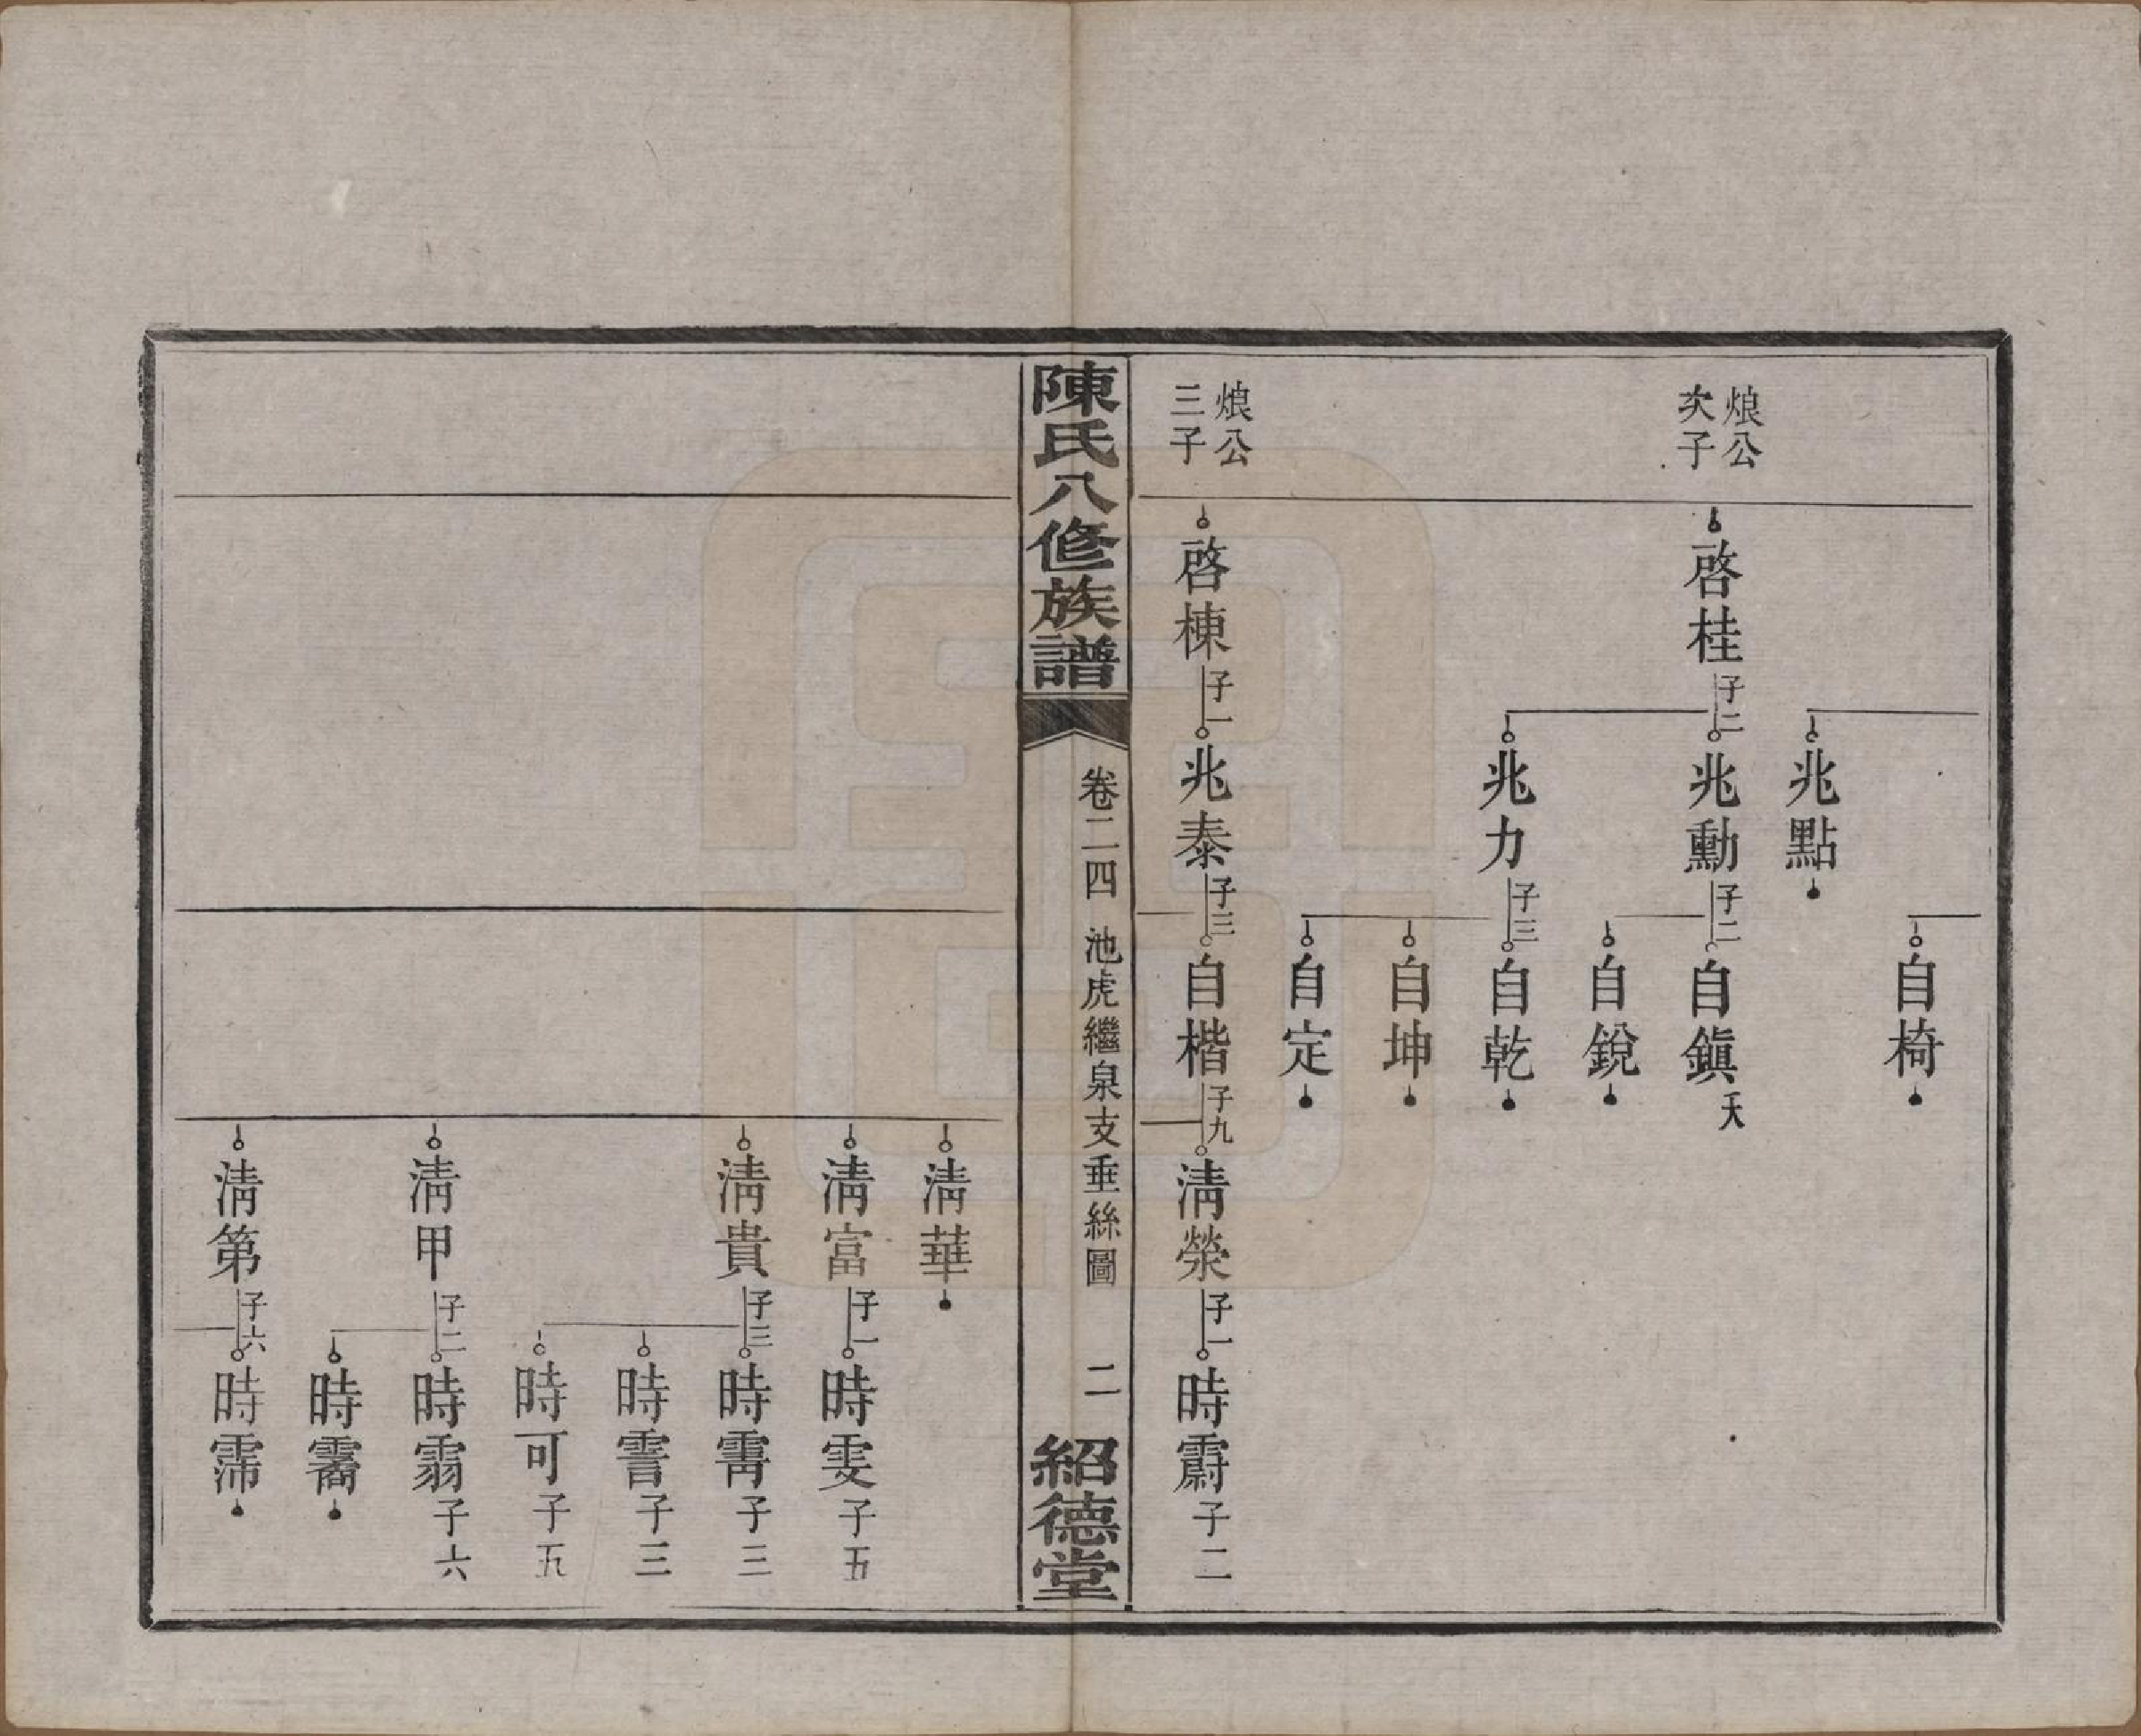 自椅
兆點
烺公
次子
啓桂 子二 兆勳 子二 自鎭 夭
自銳
兆力 子三 自乾
自坤
自定
烺公
三子
啓棟 子一 兆泰 子三 自楷 子九 淸榮 子一 時霨 子二
陳氏八修族譜 卷二四 池虎繼泉支垂絲圖 二 紹德堂
淸華
淸富 子一 時雯 子五
淸貴 子三 時 子三
時 子三
時可 子五
淸甲 子二 時 子六
時
淸第 子六 時霈